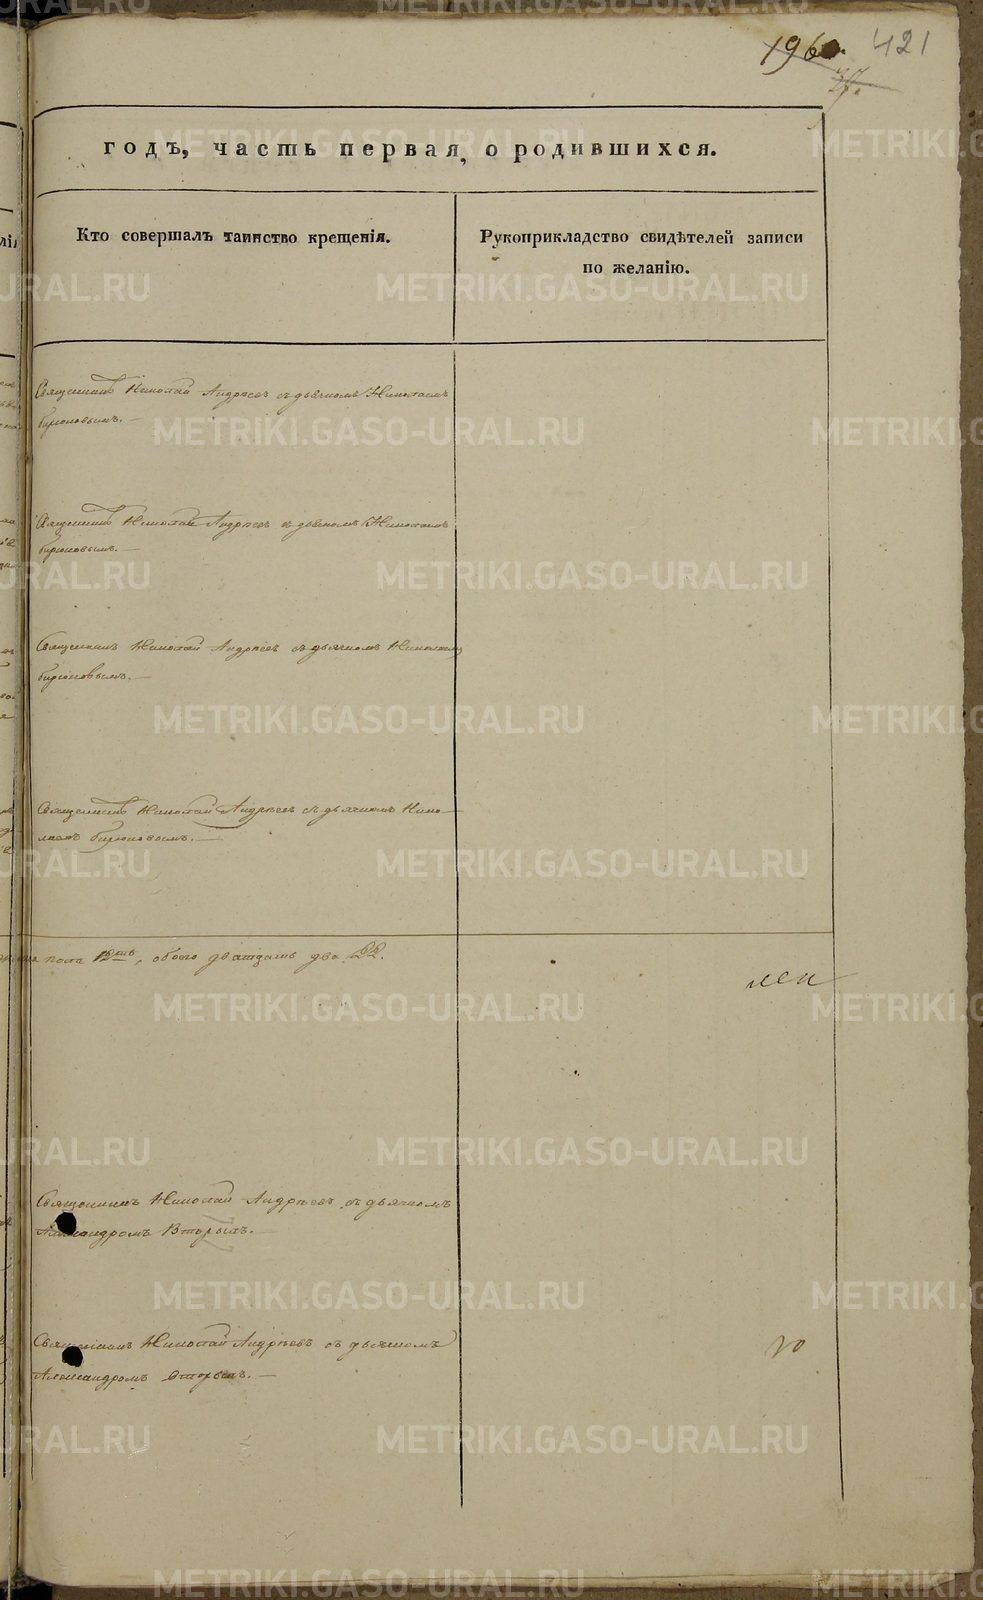 196. 421
37.
годъ, часть первая, о родившихся.
Кто совершалъ таинство крещенія.
Рукоприкладство свидѣтелей записи
по желанію.
Священникъ Николай Андреевъ съ дьячкомъ Николаемъ
Бирюковымъ. —
Священникъ Николай Андреевъ съ дьячкомъ Николаемъ
Бирюковымъ. —
Священникъ Николай Андреевъ съ дьячкомъ Николаемъ
Бирюковымъ. —
Священникъ Николай Андреевъ съ дьячкомъ Нико-
лаемъ Бирюковымъ. —
пола 12ть, обоего двадцать два 22.
Священникъ Николай Андреевъ съ дьячкомъ
Александромъ Вторыхъ. —
Священникъ Николай Андреевъ съ дьячкомъ
Александромъ Вторыхъ. —
METRIKI.GASO-URAL.RU